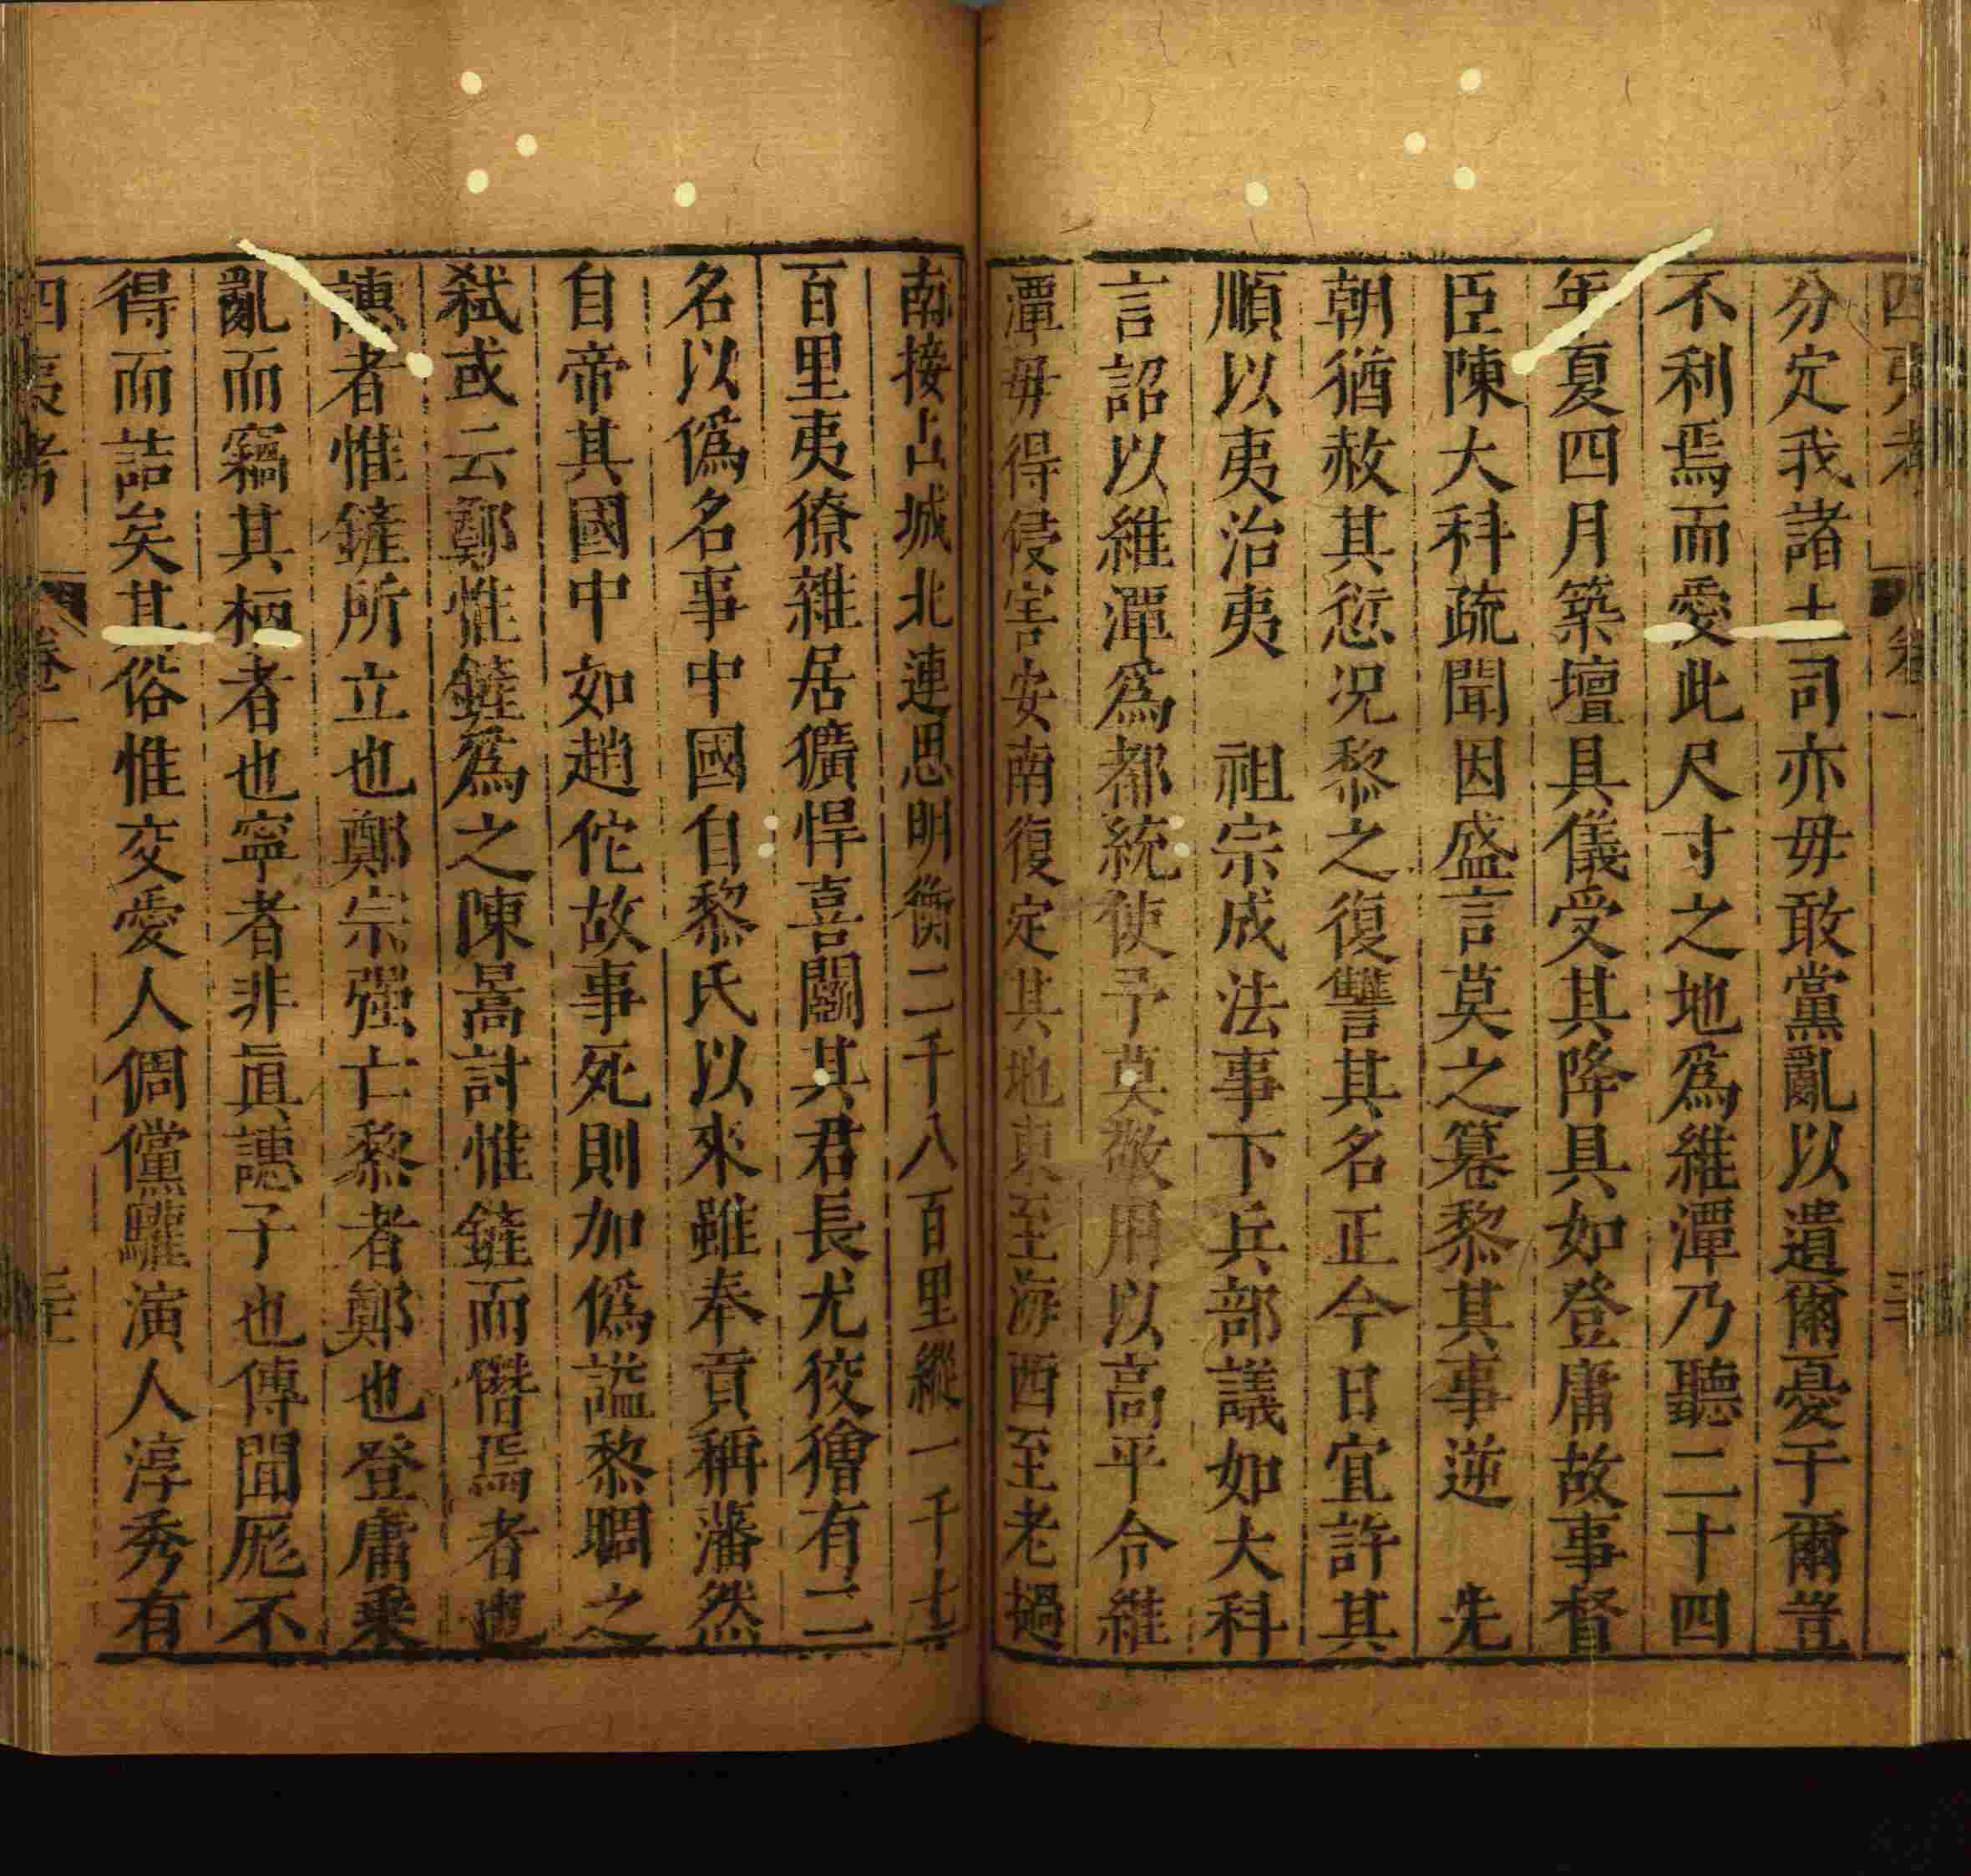 四夷考 卷一
分定我諸土司亦毋敢黨亂以遺爾憂于爾豈
不利焉而愛此尺寸之地爲維潭乃聽二十四
年夏四月築壇具儀受其降具如登庸故事督
臣陳大科疏聞因盛言莫之篡黎其事逆　先
朝猶赦其愆况黎之復讐其名正今日宜許其
順以夷治夷　祖宗成法事下兵部議如大科
言詔以維潭爲都統使予莫敬用以高平令維
潭毋得侵害安南復定其地東至海西至老撾
南接占城北連思明衡二千八百里縱一千七
百里夷獠雜居獷悍喜鬭其君長尤狡獪有二
名以僞名事中國自黎氏以來雖奉貢稱藩然
自帝其國中如趙佗故事死則加僞謚黎晭之
弑或云鄭惟鏟爲之陳暠討惟鏟而僭焉者也
譓者惟鏟所立也鄭宗强亡黎者鄭也登庸乗
亂而竊其柄者也寧者非眞譓子也傳聞厖不
得而詰矣其俗惟交愛人倜儻驩演人淳秀有
四夷考 卷一